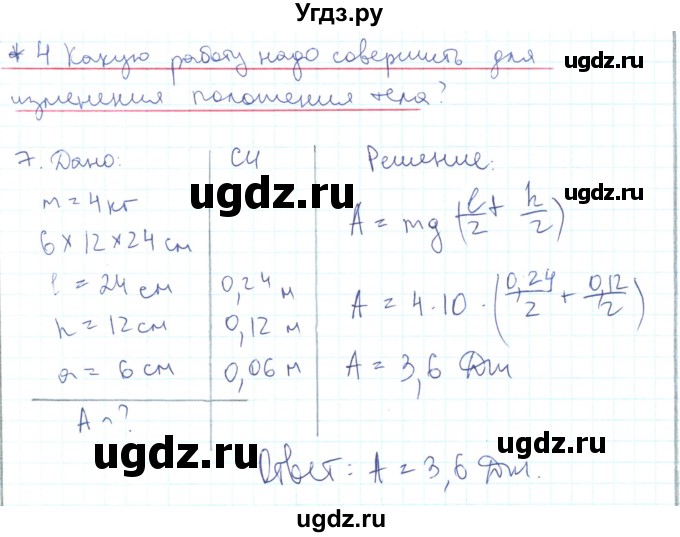 Угдз.ру
* 4 Какую работу надо совершить для
изменения положения тела?
ugdz.ru
7. Дано: СИ Решение:
m = 4 кг
ugdz.ru
A = mg (l/2 + h/2)
6 × 12 × 24 см
l = 24 см 0,24 м
A = 4·10 · (0,24/2 + 0,12/2)
h = 12 см 0,12 м
a = 6 см 0,06 м A = 3,6 Дж
A - ?
ugdz.ru
Ответ: A = 3,6 Дж.
ugdz.ru